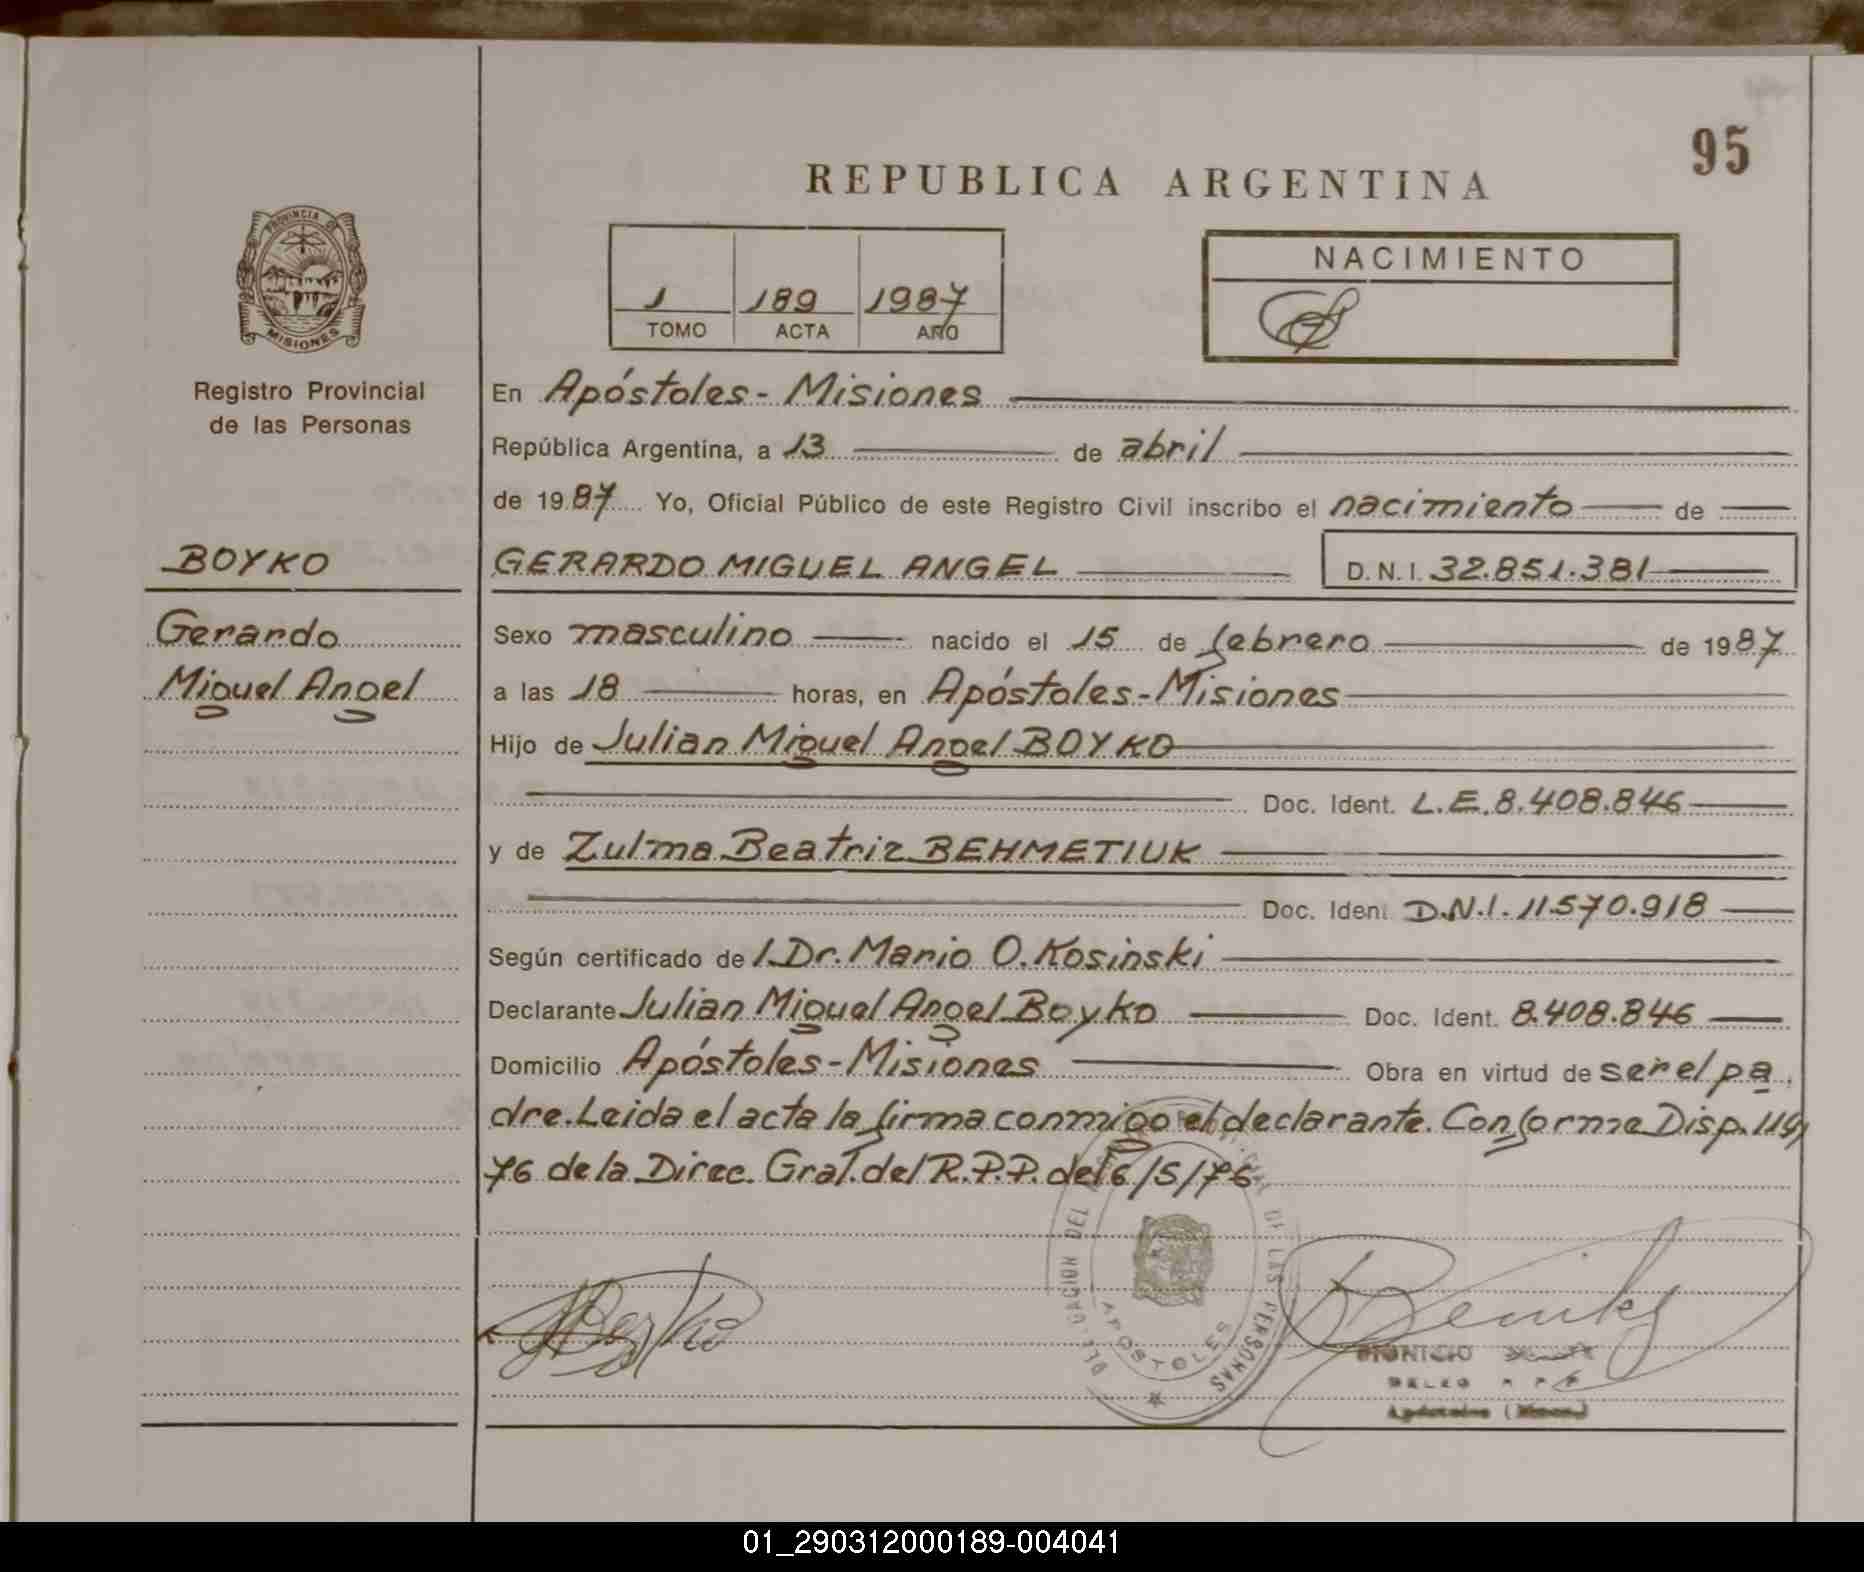 95
REPUBLICA ARGENTINA
PROVINCIA DE
MISIONES
Registro Provincial
de las Personas
1 189 1987
TOMO ACTA AÑO
NACIMIENTO
En Apóstoles - Misiones
República Argentina, a 13 de abril
de 1987 Yo, Oficial Público de este Registro Civil inscribo el nacimiento de
BOYKO
GERARDO MIGUEL ANGEL D.N.I. 32.851.381
Gerardo
Miguel Angel
Sexo masculino nacido el 15 de febrero de 1987
a las 18 horas, en Apóstoles-Misiones
Hijo de Julian Miguel Angel BOYKO
Doc. Ident. L.E. 8.408.846
y de Zulma Beatriz BEHMETIUK
Doc. Ident. D.N.I. 11.570.918
Según certificado de l.Dr. Mario O. Kosinski
Declarante Julian Miguel Angel Boyko Doc. Ident. 8.408.846
Domicilio Apóstoles-Misiones Obra en virtud de ser el pa
dre. Leida el acta la firma conmigo el declarante. Conforme Disp. 119/
76 de la Direc. Gral. del R.P.P. del 6/5/76
DEL DE LAS PERSONAS
APOSTOLES
DIONICIO
Apóstoles (Mnes.)
01_290312000189-004041